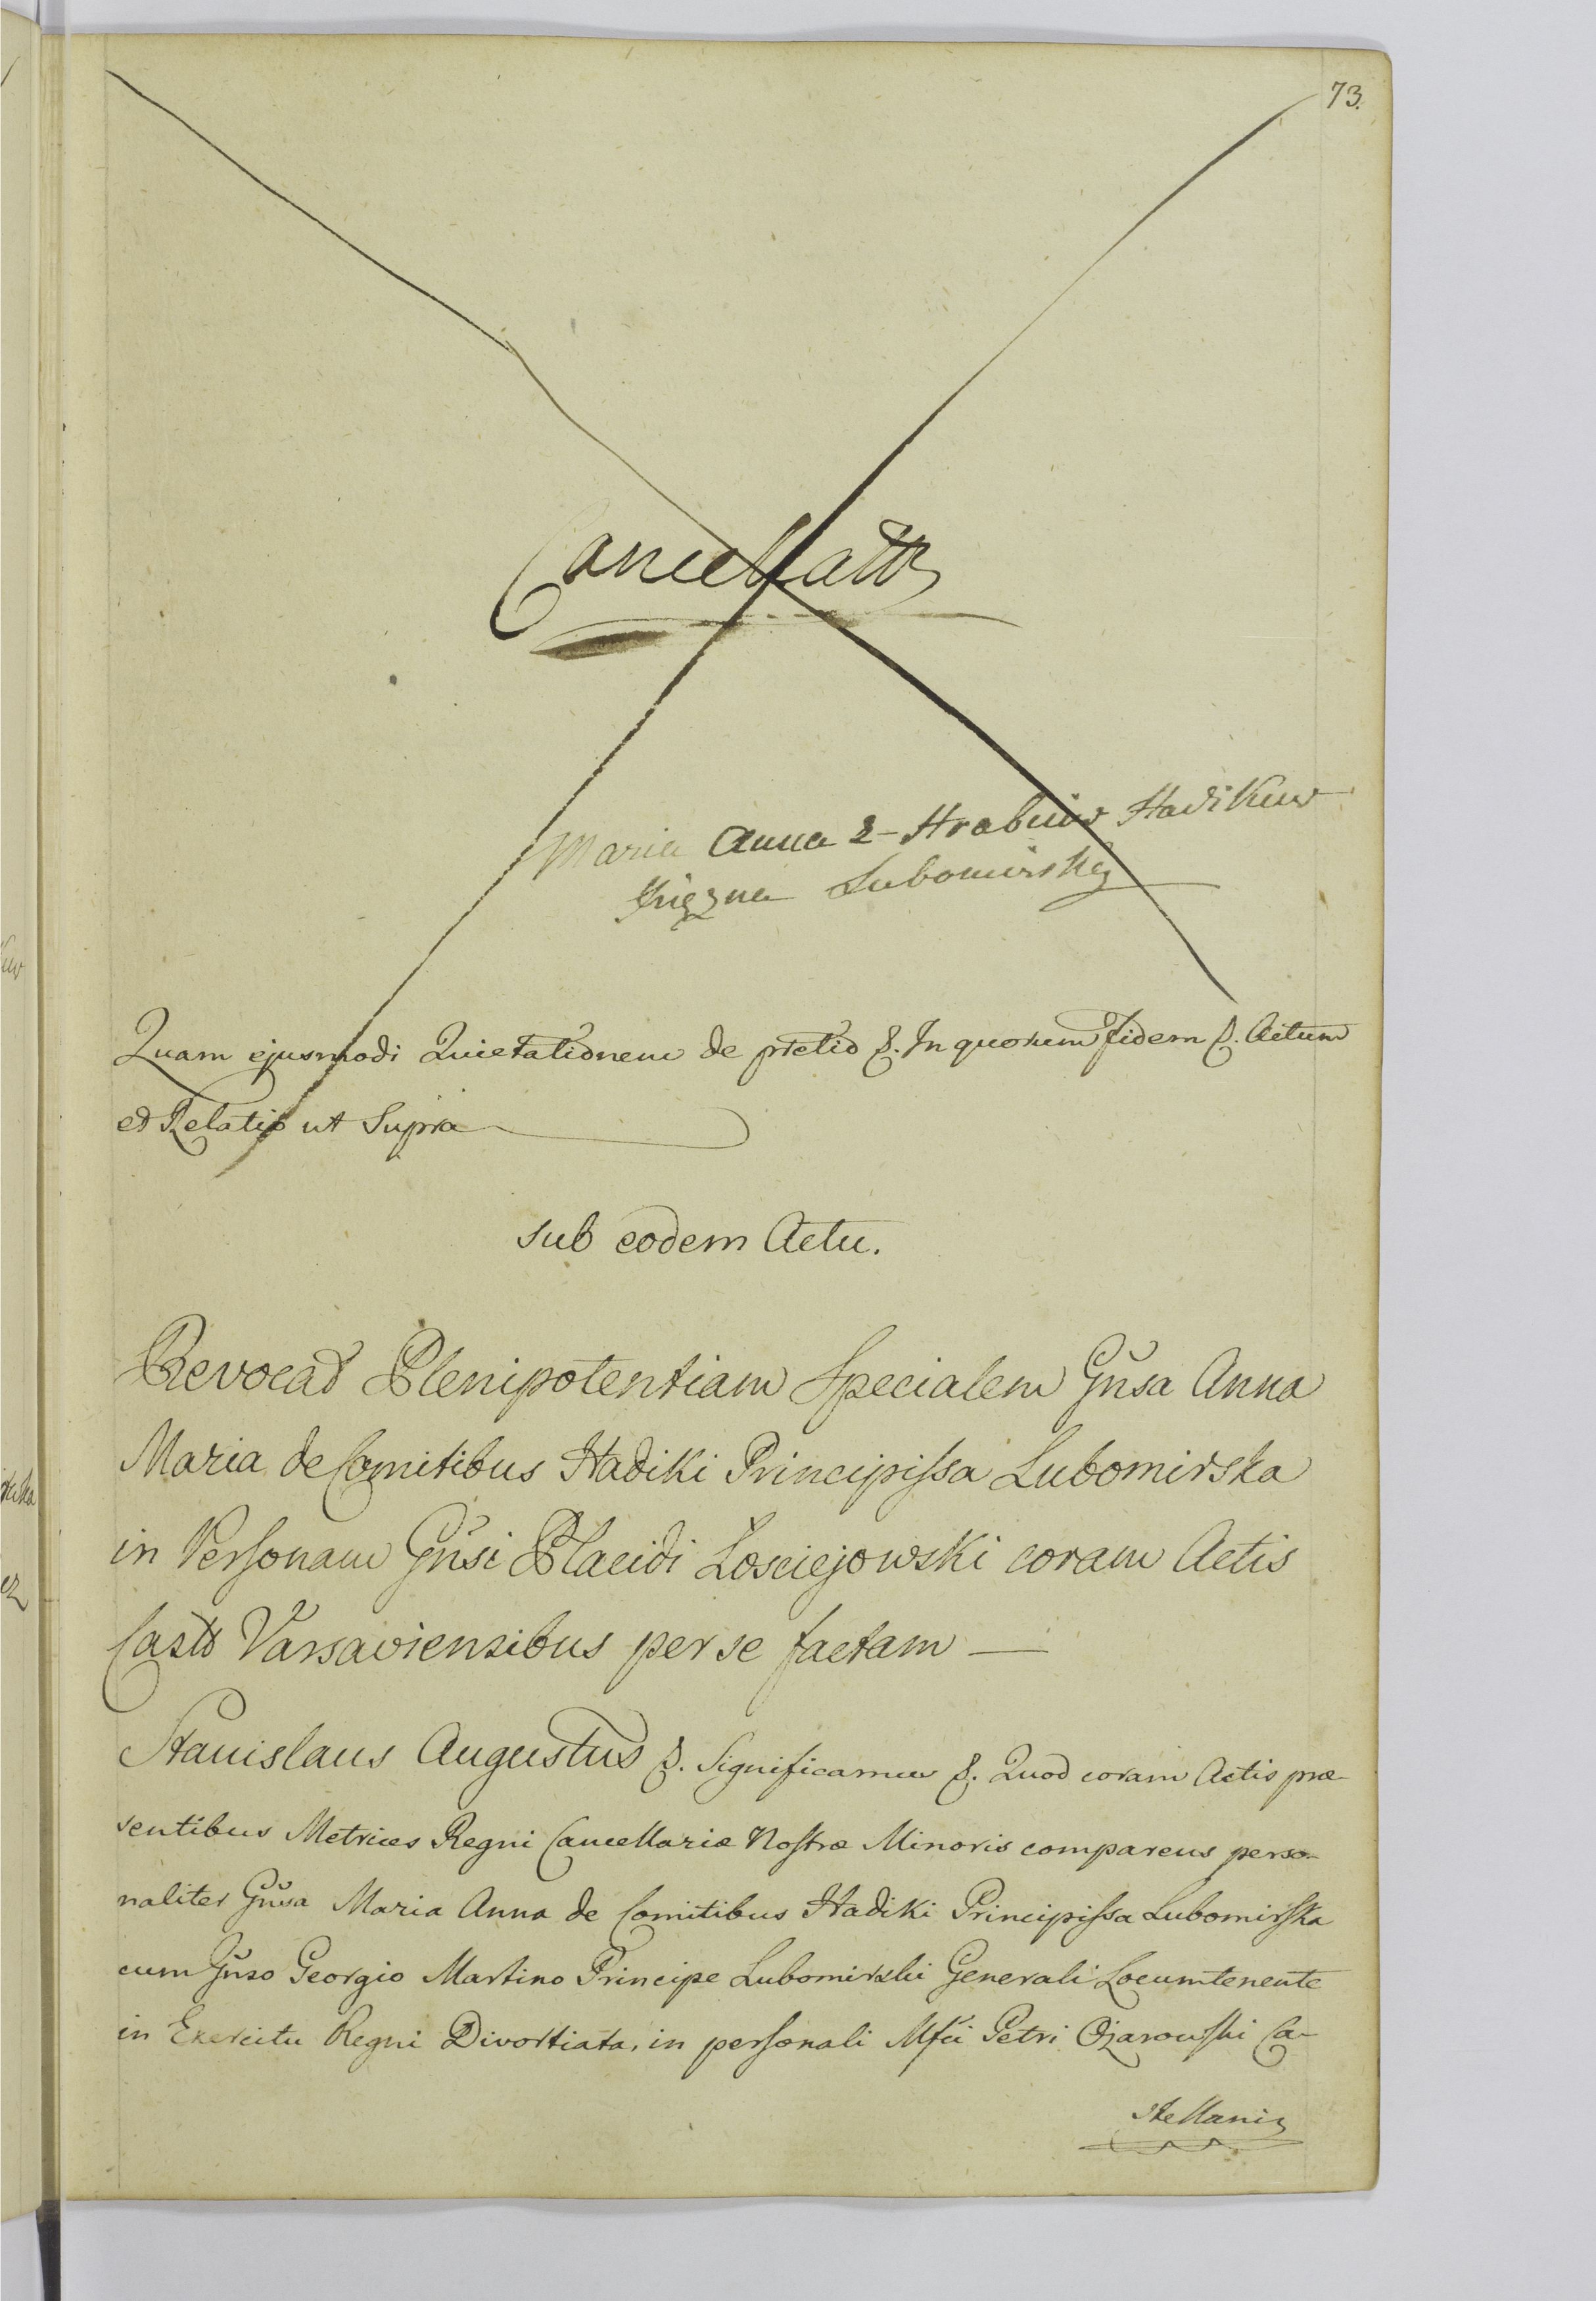 73.
Cancellatr
Maria Anna z Hrabiow Hadikuw
Xięzna Lubomirska
Quam ejusmodi Quietationem de pretio &. In quorum fidem &. Actum
et Relatio ut Supra
sub eodem Actu.
Revocat Plenipotentiam Specialem Gnsa Anna
Maria de Comitibus Hadiki Principissa Lubomirska
in Personam Gnsi Placidi Łosciejowski coram Actis
Castr Varsaviensibus per se factam —
Stanislaus Augustus &. Significamus &. Quod coram Actis præ-
sentibus Metrices Regni Cancellariæ Nostræ Minoris comparens perso-
naliter Gnsa Maria Anna de Comitibus Hadiki Principissa Lubomirska
cum Gnso Georgio Martino Principe Lubomirski Generali Locumtenente
in Exercitu Regni Divortiata, in personali Mfci Petri Ożarowski Ca-
stellani